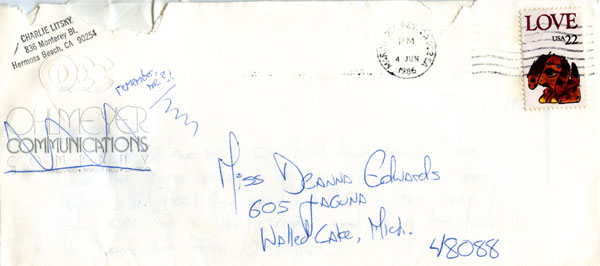 CHARLIE LITSKY
836 Monterey Bl.
Hermosa Beach, CA 90254
remember
me?!
OHLMEYER
COMMUNICATIONS
COMPANY
PM
4 JUN
1986
LOVE
USA 22
Miss Deanna Edwards
605 Laguna
Walled Lake, Mich.
48088